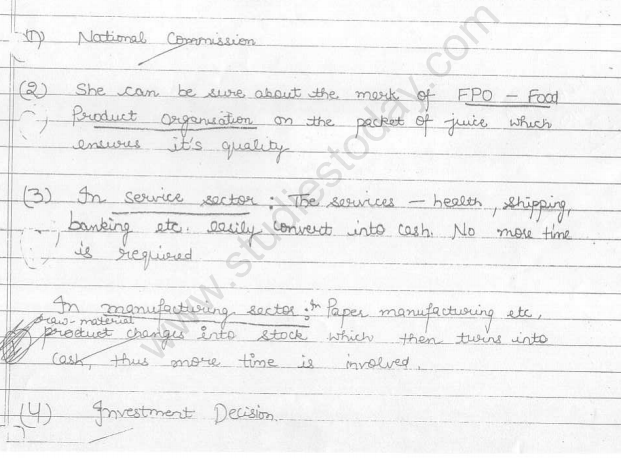 (1) National Commission
(2) She can be sure about the mark of FPO - Food
Product Organisation on the packet of juice which
ensures it's quality
(3) In service sector : The services - health, shipping,
banking etc. easily convert into cash. No more time
is required
In manufacturing sector : In Paper manufacturing etc,
raw-material
product changes into stock which then turns into
cash, thus more time is involved.
(4) Investment Decision.
www.studiestoday.com